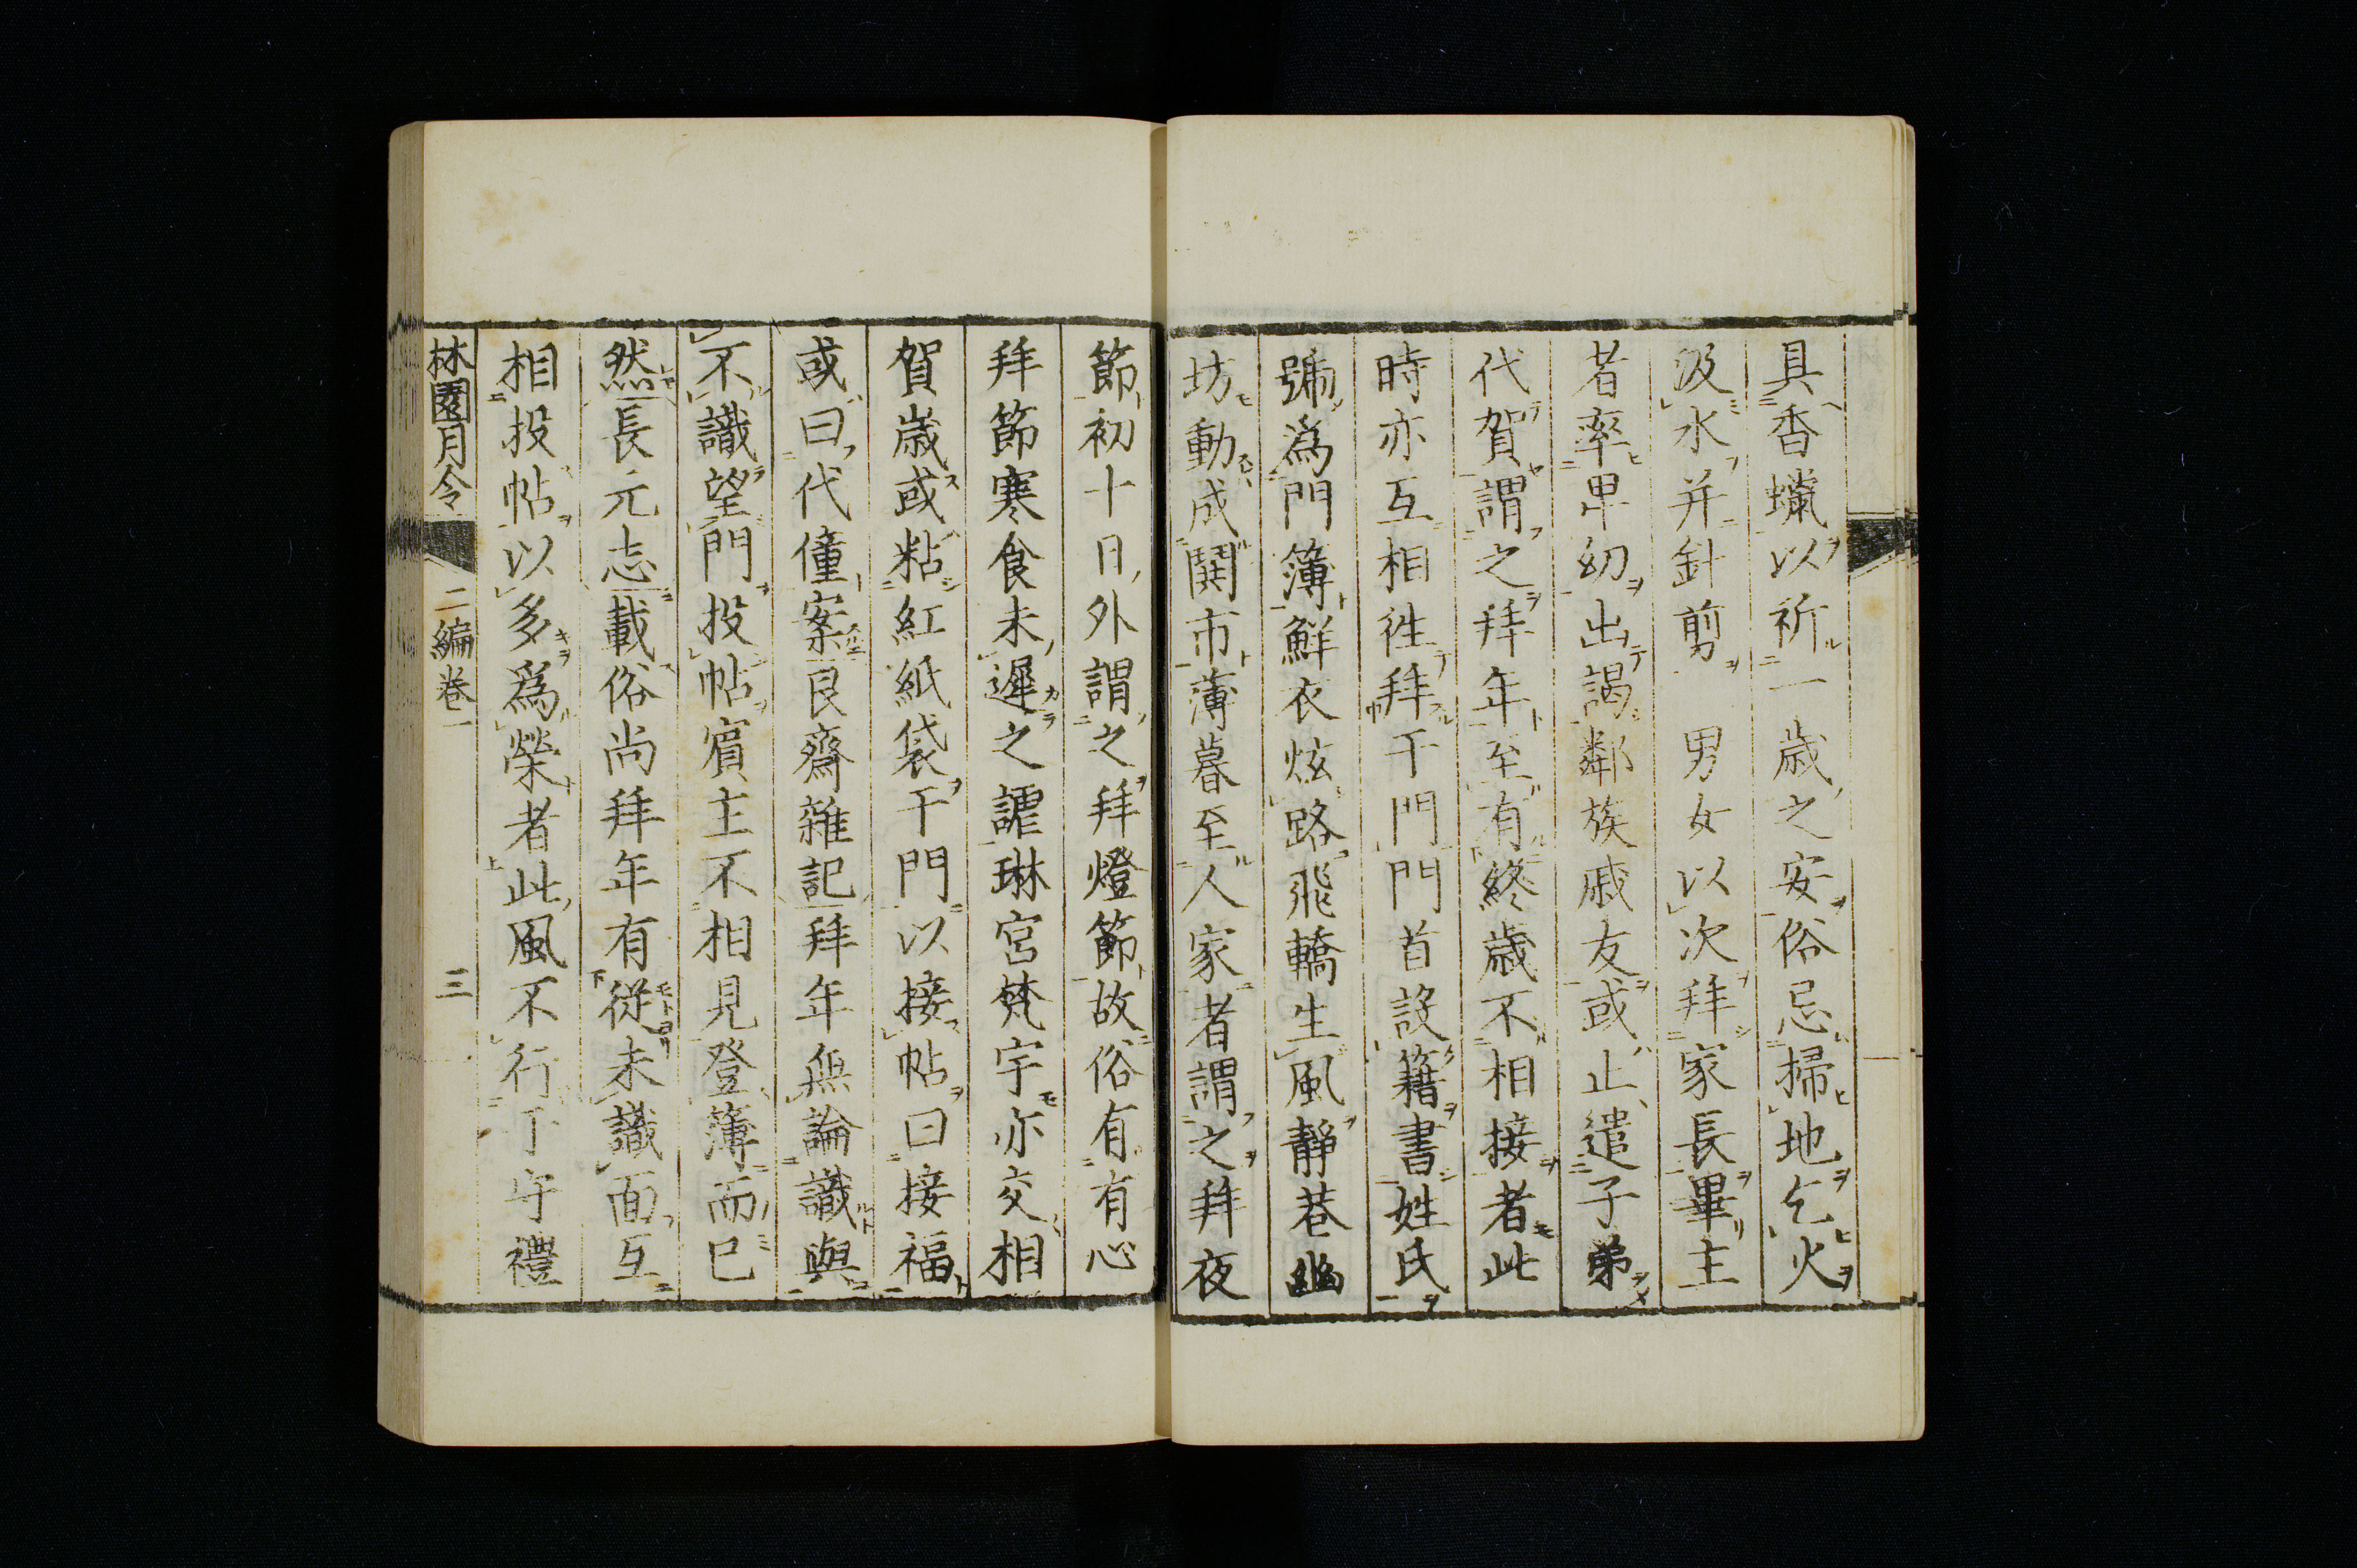 具香蠟以祈一歳之安俗忌掃地乞火
汲水并針剪 男女以次拜家長畢主
者率卑幼出謁鄰族戚友或止遣子弟
代賀謂之拜年至有終歳不相接者此
時亦互相徃拜于門門首設籍書姓氏
號爲門簿鮮衣炫路飛轎生風靜巷幽
坊動成鬨市薄暮至人家者謂之拜夜
節初十日外謂之拜燈節故俗有有心
拜節寒食未遲之謔琳宮梵宇亦交相
賀歳或粘紅紙袋于門以接帖曰接福
或曰代僮案艮齋雜記拜年無論識與
不識望門投帖賓主不相見登簿而已
然長元志載俗尚拜年有從未識面互
相投帖以多爲榮者此風不行丁守禮
林園月令 二編卷一 三